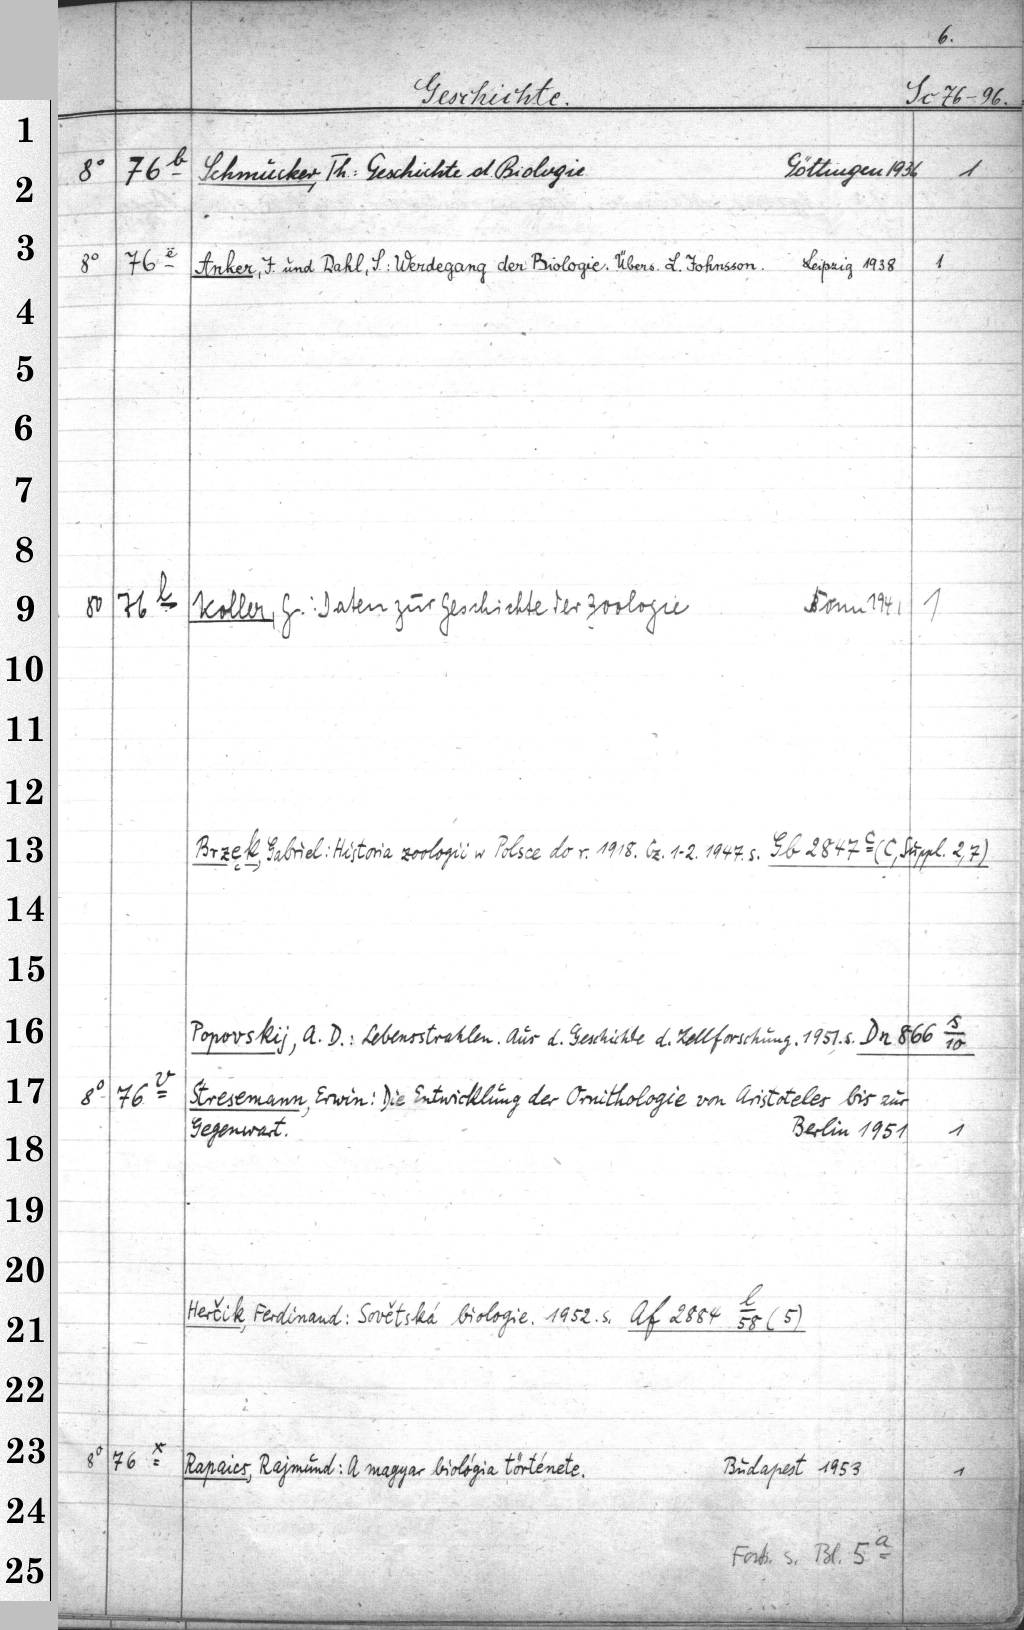 6.
Geschichte. Sc 76-96.
1
2
3
4
5
6
7
8
9
10
11
12
13
14
15
16
17
18
19
20
21
22
23
24
25
8° 76 b Schmucker, Th.: Geschichte d. Biologie Göttingen 1936 1
8° 76 e Anker, J. und Dahl, S.: Werdegang der Biologie. Übers. L. Johnsson. Leipzig 1938 1
8° 76 l Koller, G.: Daten zur Geschichte der Zoologie Bonn 1941 1
Brzęk, Gabriel: Historia zoologii w Polsce do r. 1918. Cz. 1-2. 1947. s. Gb 2847 c (C, Suppl. 2,7)
Popovskij, A. D.: Lebensstrahlen. Aus d. Geschichte d. Zellforschung. 1951. s. Dn 866 s/10
8° 76 v Stresemann, Erwin: Die Entwicklung der Ornithologie von Aristoteles bis zur
Gegenwart. Berlin 1951 1
Herčik, Ferdinand: Sovětská biologie. 1952. s. Af 2884 l/58 (5)
8° 76 x Rapaics, Rajmund: A magyar biológia története. Budapest 1953 1
Forts. s. Bl. 5 a